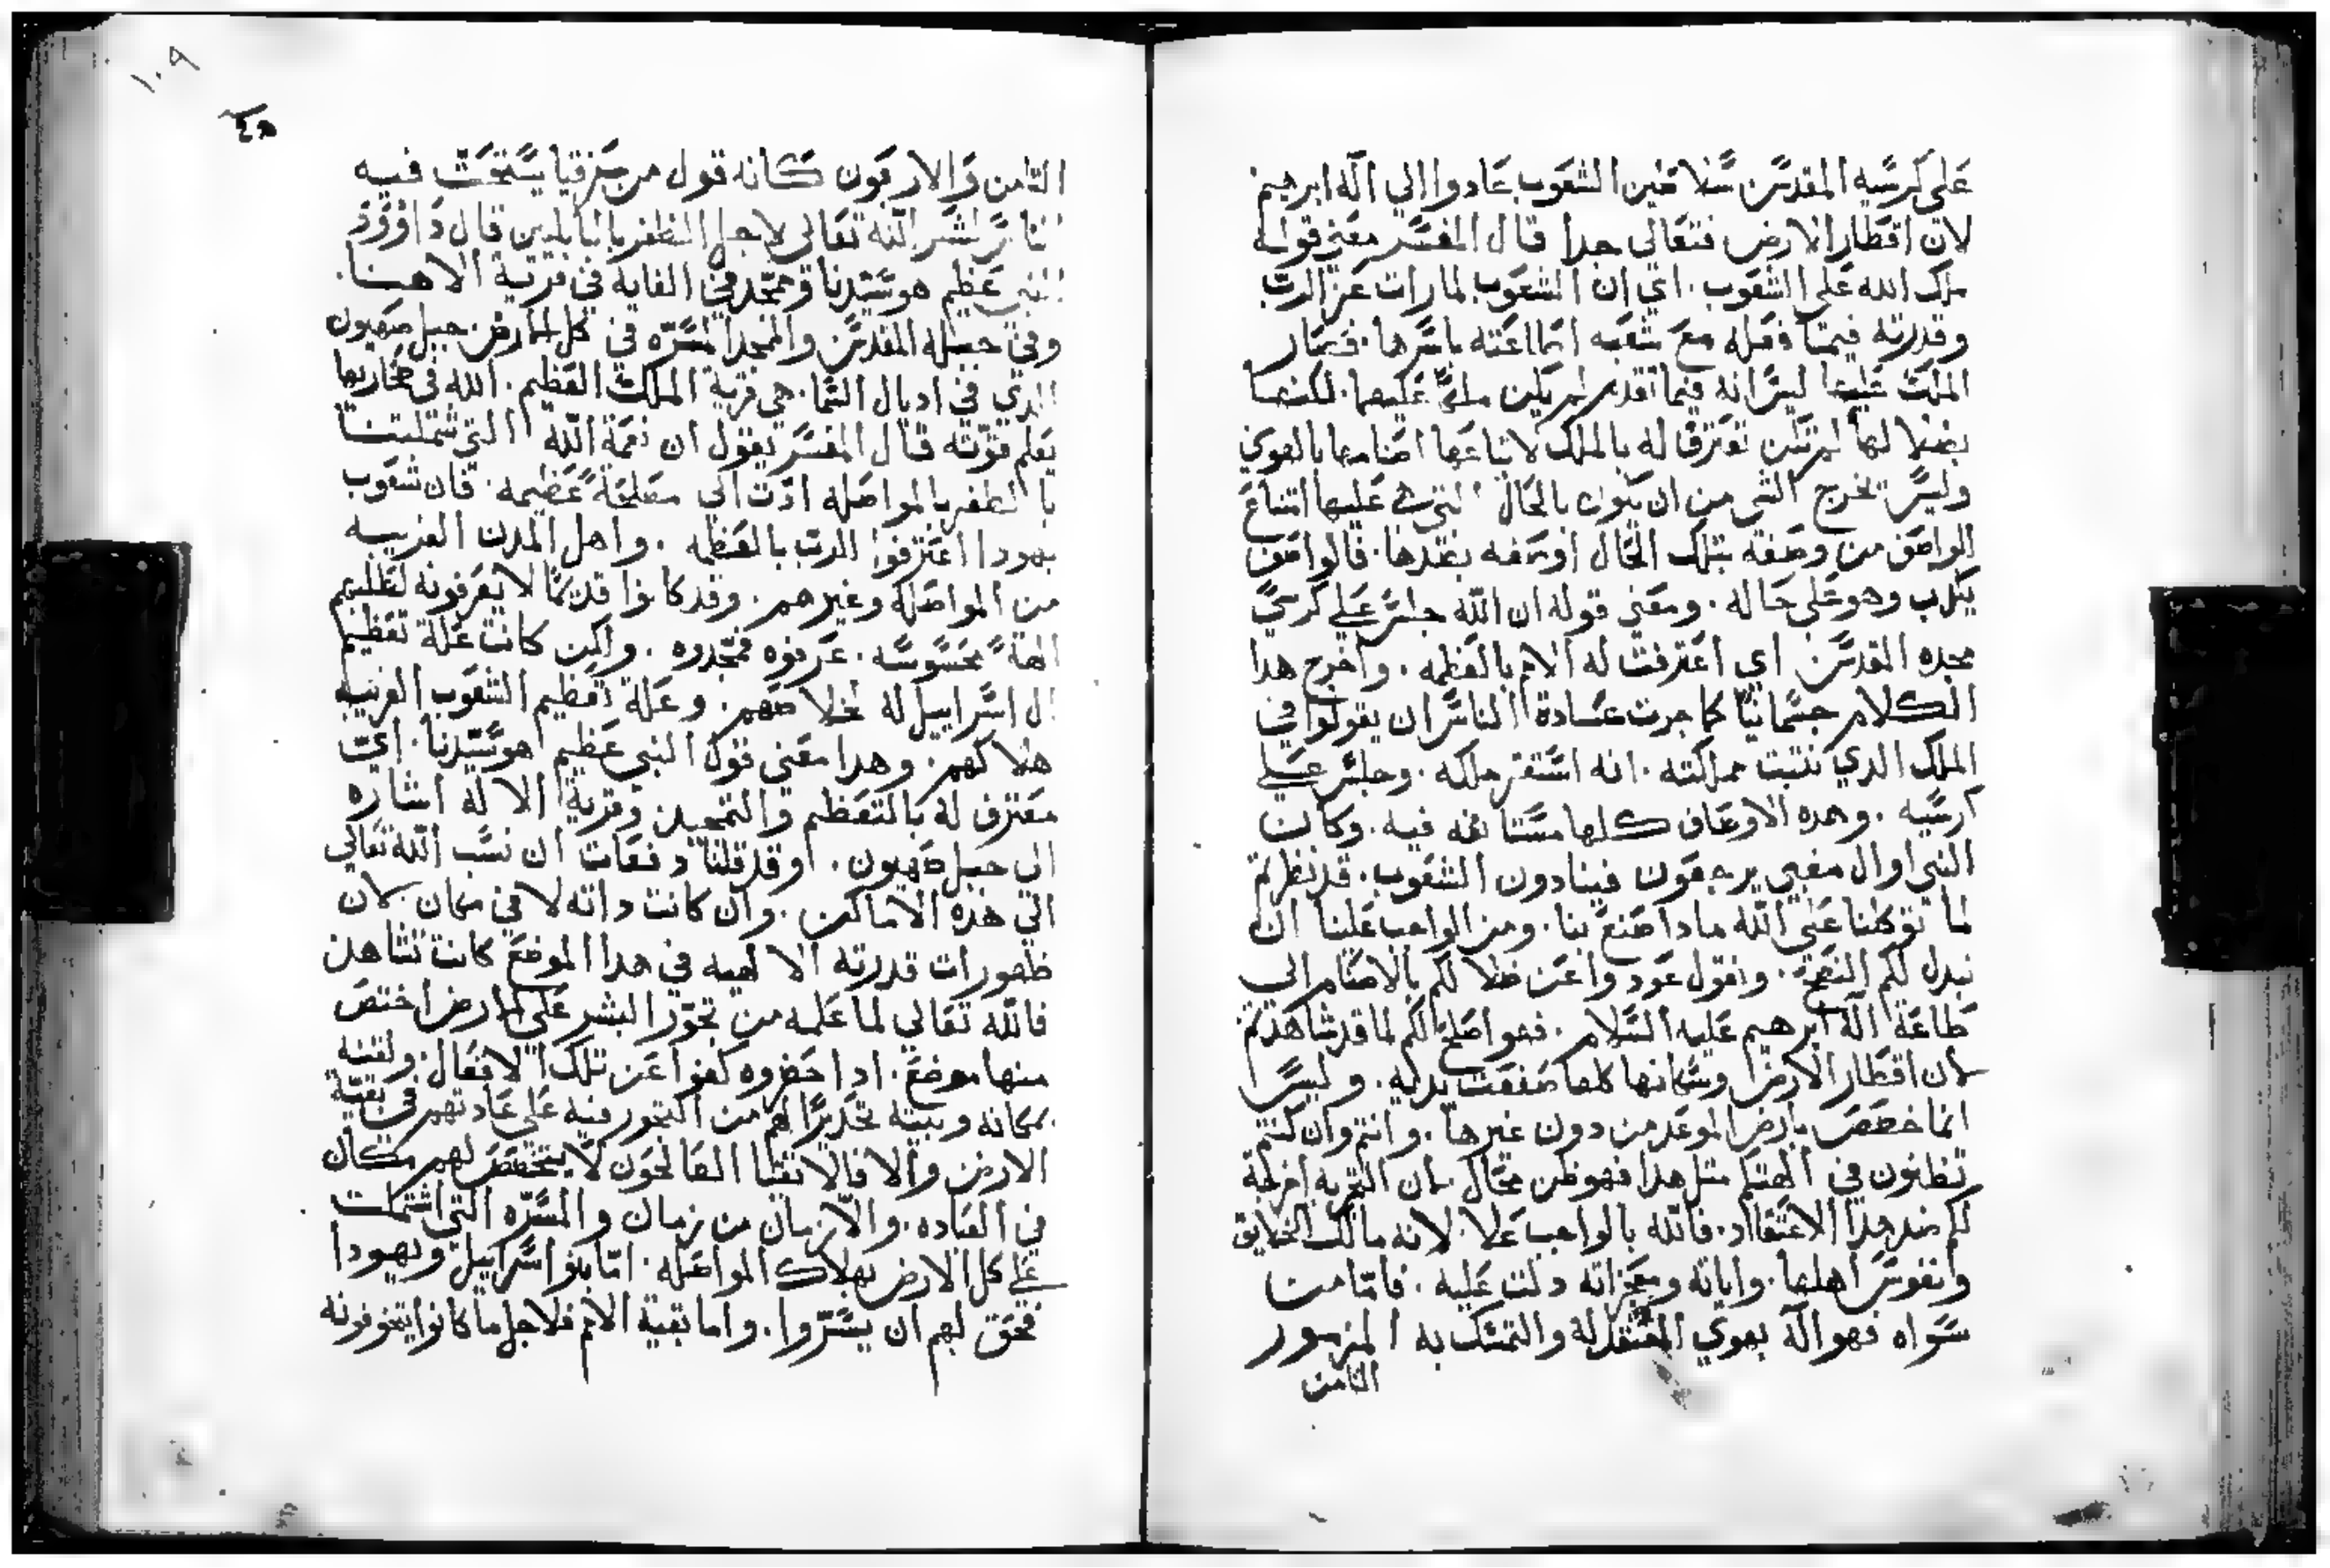 علي كرسيه المقدس سلاطين الشعوب عادوا الي اله ابرهيم
لان اقطار الارض فتعالى جدا قال المفسر معني قوله
ملك الله علي الشعوب . اي ان الشعوب لما رات عز الرب
وقدرته فيما فعله مع شعبه اطاعته باسرها . فصار
الملك عليها ليس انه فيما تقدم لم يكن ملكا عليها . لكنها
بضلالها لم تكن تعترف له بالملك لاتباعها اصنامها بالهوي
وليس يخرج الشي من ان يكون بالحال التي هي عليها امتناع
الواصف من وصفه بتلك الحال او صفه بضدها . فالواصف
يكدب وهو علي حاله . ومعني قوله ان الله جلس علي كرسي
مجده المقدس اي اعترفت له الامم بالعظمه . واخرج هدا
الكلام جسمانيا كما جرت عادة الناس ان يقولوا في
الملك الدي تثبت مملكته . انه استقر ملكه . وجلس علي
كرسيه . وهده الاوصاف كلها مستانفه فيه . وكان
النبي اوال مغبي يرجعون فينادون الشعوب . قد نظرتم
لما توكلنا علي الله مادا صنع بنا . ومن الواجب علينا ان
نبدل لكم النصح . ونقول عودوا عن ضلالكم بالاصنام الي
طاعة اله ابرهيم عليه السلام . فهو اصلح لكم لما قد شاهدتم
لان اقطار الارض وسكانها كلها صنعت يديه . وليس
انما خصص بارض الموعد من دون غيرها . وانتم وان كنتم
تظنون في الهتكم مثل هدا فهو ظن محال لان التجربه اخرجت
لكم ضد هدا الاعتقاد . فالله بالواجب علا . لانه مالك الخلايق
ونفوس اهلها . واياته ومعجزاته دلت عليه . فاما من
سواه فهو اله بهوي المعتقد له والتمسك به المزمور
الثامن
١٠٩
الثامن والاربعون كانه قول من حزقيا يستحث فيه
الناس لشكر الله تعالى لاجل الظفر بالبابليين قال داوود
النبي عظيم هو سيدنا وممجد في الغايه في قرية الاهنا .
وفي جبله المقدس والمجد المسره في كل الارض . جبل صهيون
الدي في اديال الشما . هي قرية الملك العظيم . الله في صخاريها
يعلم قوته قال المفسر يقول ان نعمة الله التي شملتنا
بالظفر بالمواصله ادت الي مصلحة عظيمه . فان شعوب
يهودا اعترفوا للرب بالعظمه . واهل المدن الغريبه
من المواصله وغيرهم . وقد كانوا قديما لا يعرفونه لتعظيمهم
الهة محسوسه . عرفوه فمجدوه . ولكن كانت علة تعظيم
ال اسراييل له لخلاصهم . وعلة تعظيم الشعوب الغريبه
هلاكهم . وهدا معني قول النبي عظيم هو سيدنا . اي
معترف له بالتعظيم والتمجيد وقرية الاله اشاره
الي جبل صهيون . وقد قلنا دفعات ان نسب الله تعالي
الي هده الاماكن . وان كانت داته لا في مكان لان
ظهورات قدرته الالهيه في هدا الموضع كانت تشاهد
فالله تعالي لما علمه من تجوز البشر علي الارض اختص
منها موضع . ادا حضروه كفوا عن تلك الافعال . ولقبه
بمكانه وبيته تحديرا لهم من التجوز فيه علي عادتهم في بقية
الارض والا فالاتقيا الصالحون لا يتخصص لهم مكان
في العباده . والازمان من زمان والمسره التي اشتملت
علي كل الارض بهلاك المواصله . اما بنو اسراييل ويهودا
فحق لهم ان يسروا . واما بقية الامم فلاجل ما كانوا يتخوفونه